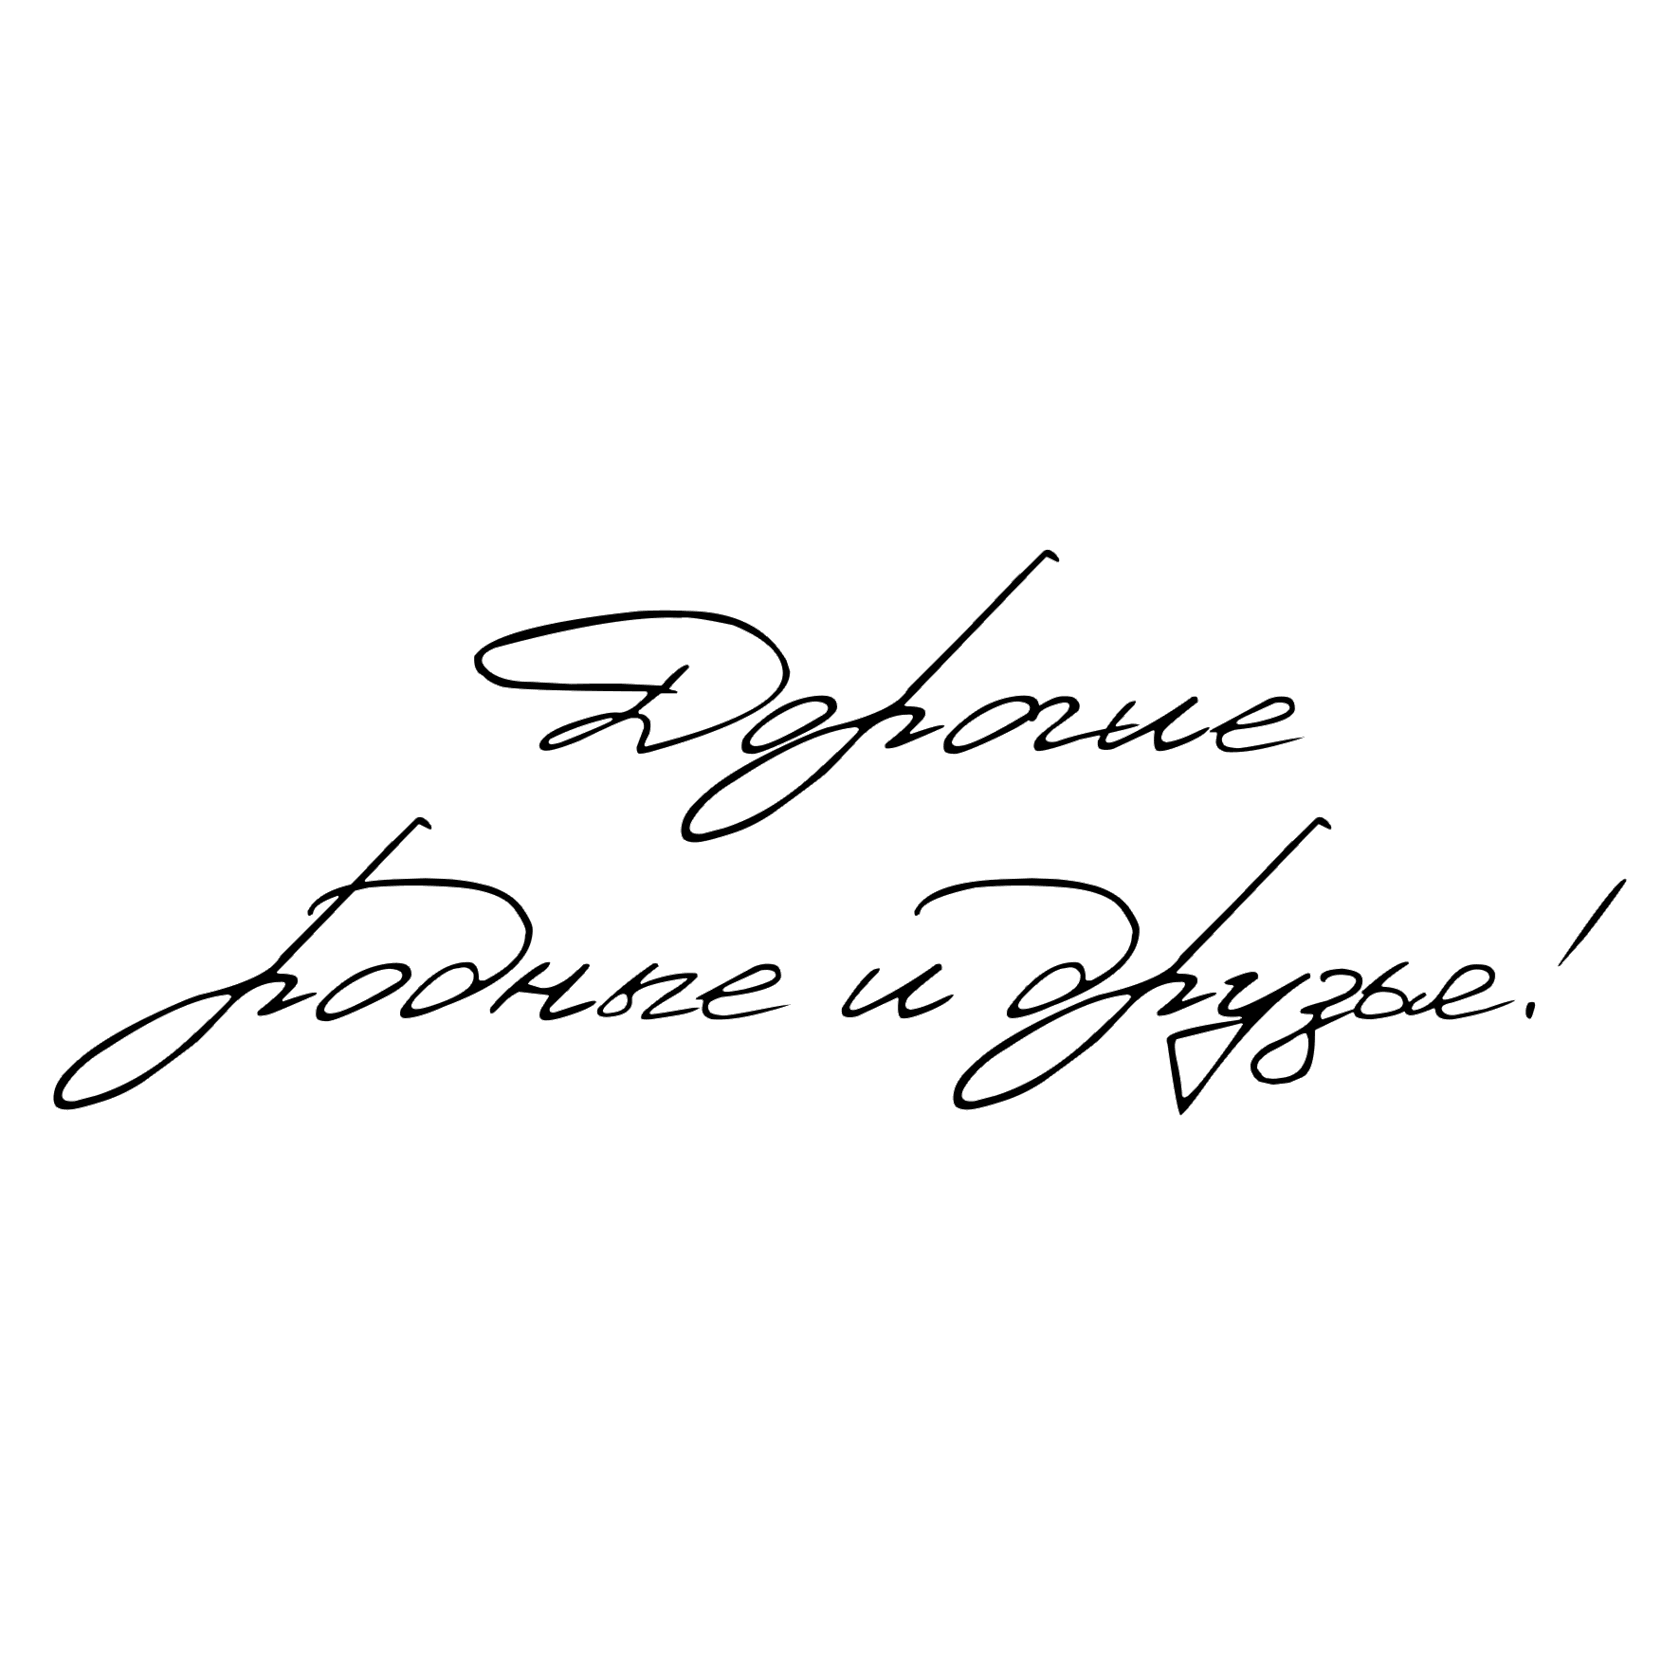 Дорогие
родные и друзье!